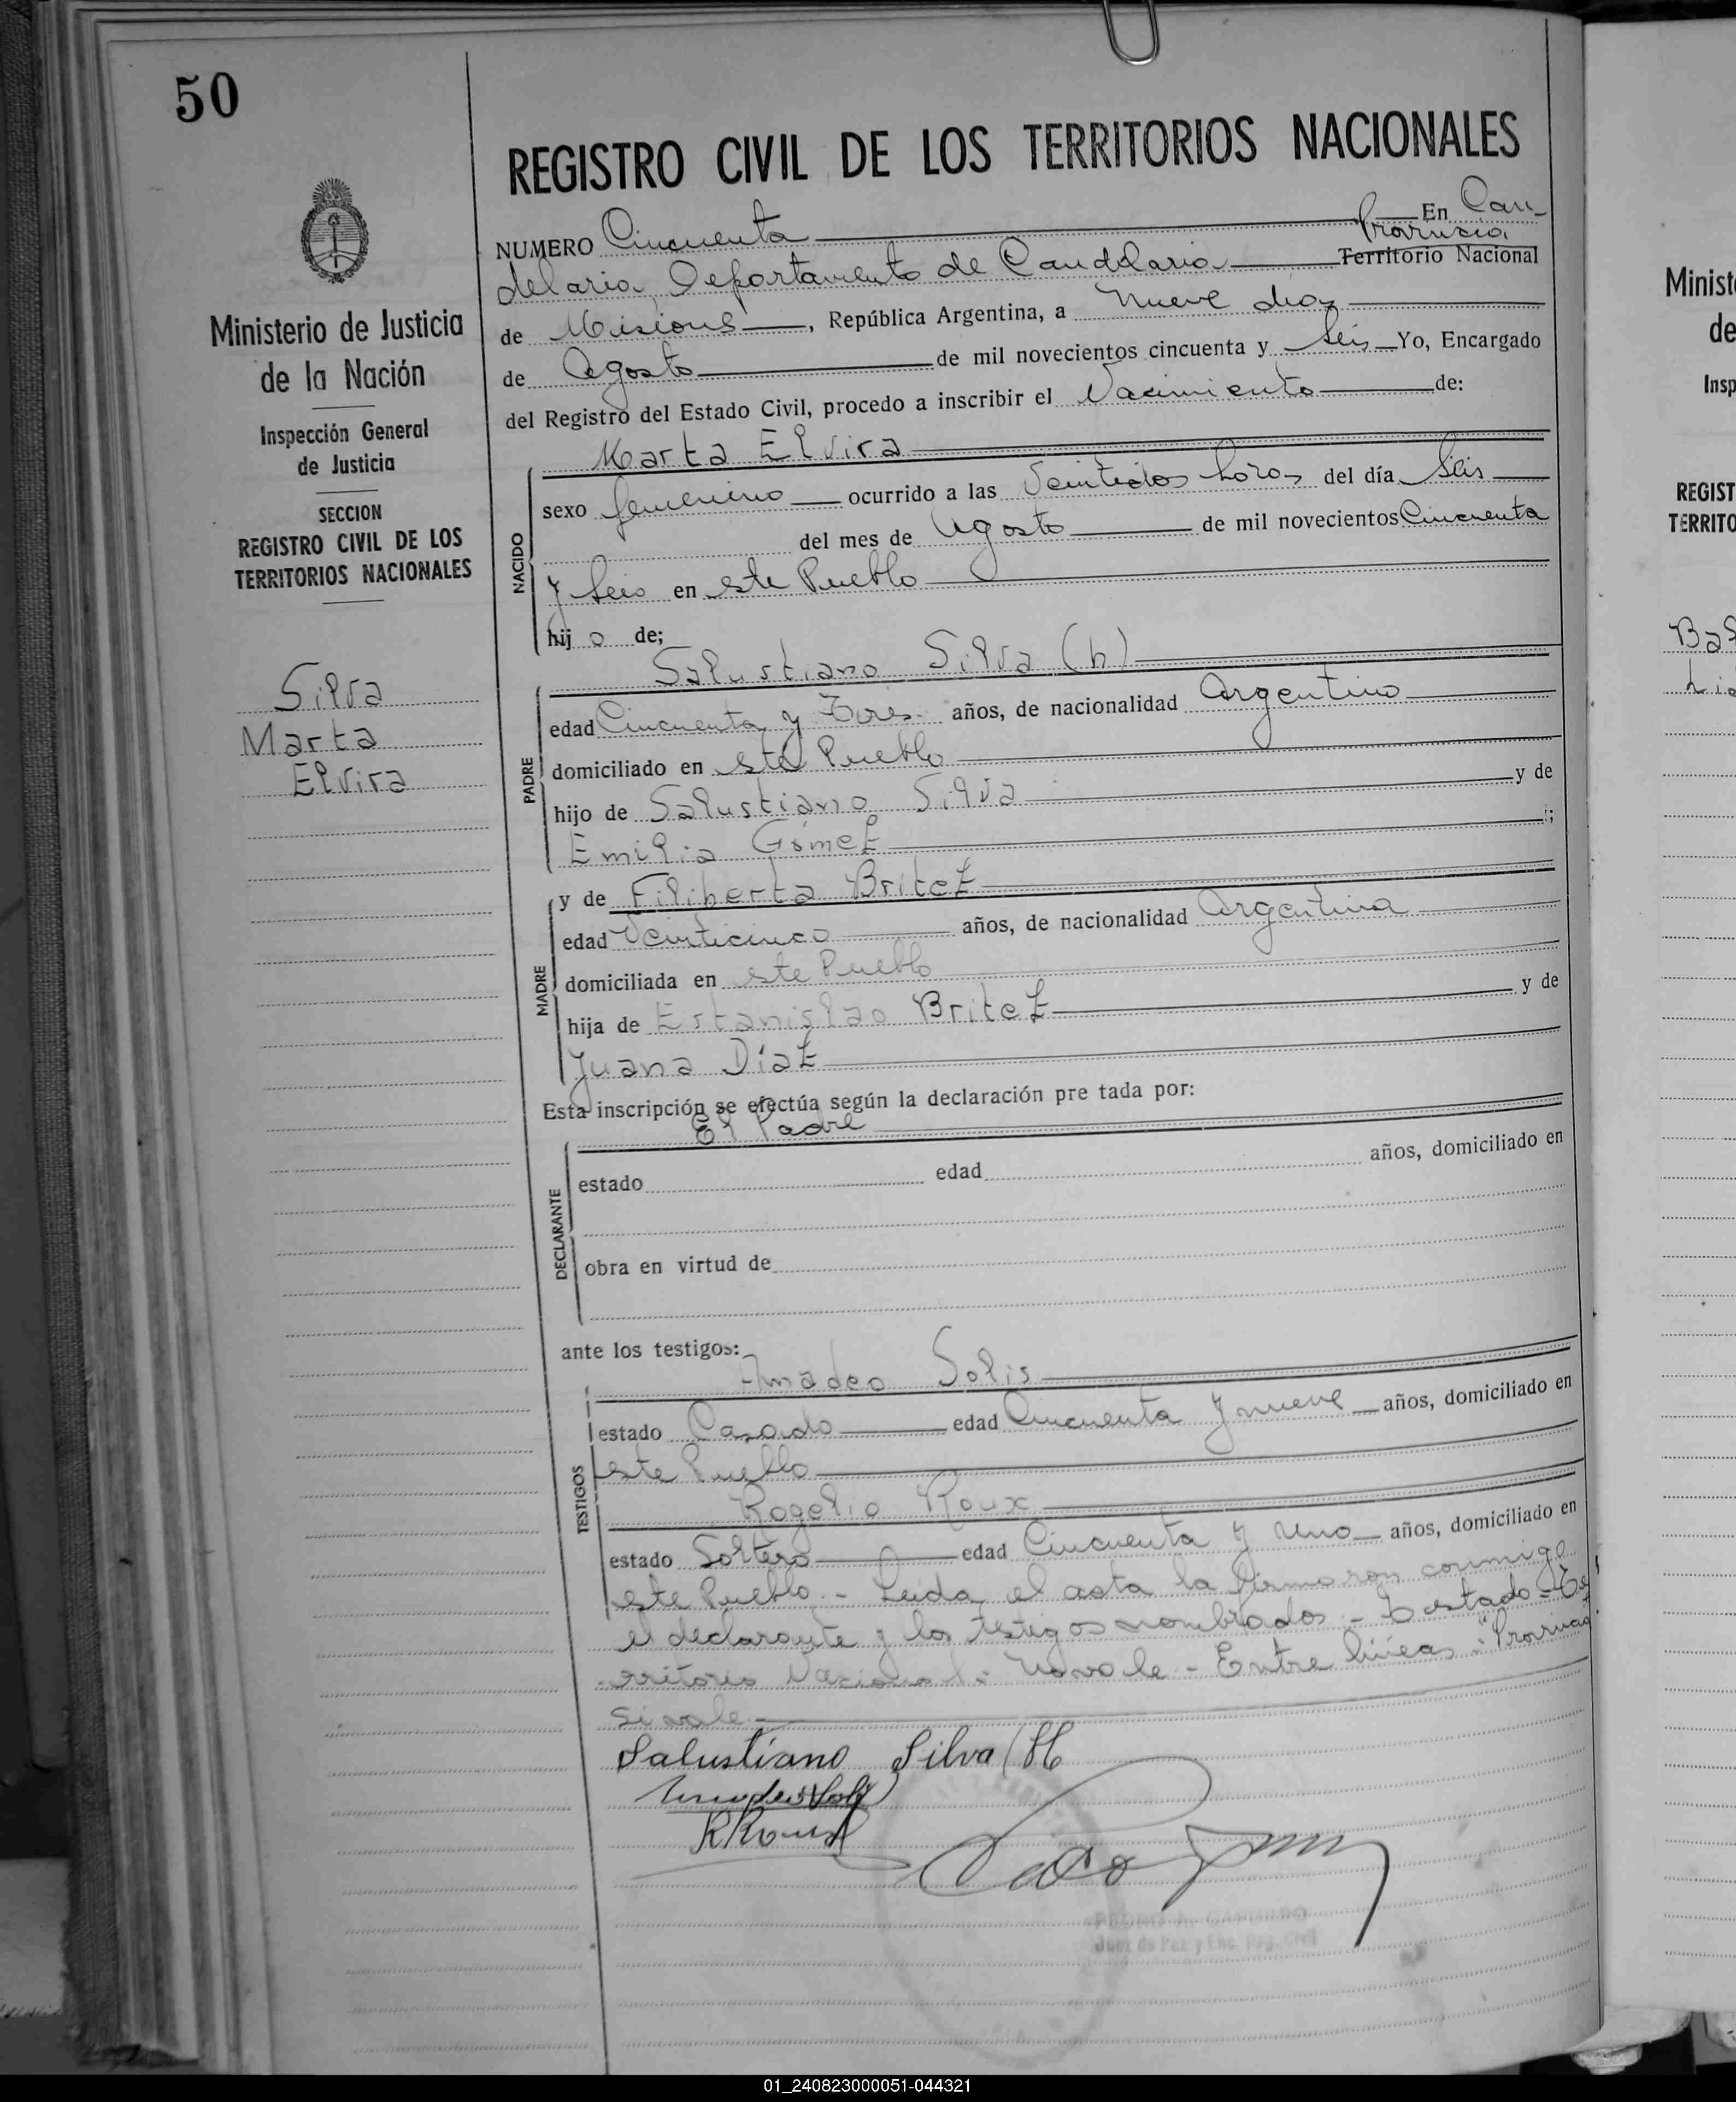 50
REGISTRO CIVIL DE LOS TERRITORIOS NACIONALES
NUMERO Cincuenta En Can-
Provincia
delaria, Departamento de Candelaria Territorio Nacional
de Misiones, República Argentina, a nueve dias
de Agosto de mil novecientos cincuenta y Seis Yo, Encargado
del Registro del Estado Civil, procedo a inscribir el Nacimiento de:
Ministerio de Justicia
de la Nación
Inspección General
de Justicia
SECCION
REGISTRO CIVIL DE LOS
TERRITORIOS NACIONALES
Silva
Marta
Elvira
NACIDO
Marta Elvira
sexo femenino ocurrido a las Veintidos horas del día Seis
del mes de Agosto de mil novecientos Cincuenta
y Seis en este Pueblo
hij a de;
PADRE
Salustiano Silva (h)
edad Cincuenta y Tres años, de nacionalidad Argentino
domiciliado en este Pueblo
hijo de Salustiano Silva y de
Emilia Gómez ;
MADRE
y de Filiberta Britez
edad Veinticinco años, de nacionalidad Argentina
domiciliada en este Pueblo
hija de Estanislao Britez y de
Juana Díaz
Esta inscripción se efectúa según la declaración pre tada por:
DECLARANTE
El Padre
estado edad años, domiciliado en
obra en virtud de
ante los testigos:
TESTIGOS
Amadeo Solis
estado Casado edad Cincuenta y nueve años, domiciliado en
este Pueblo
Rogelio Roux
estado Soltero edad Cincuenta y uno años, domiciliado en
este Pueblo.- Leida el acta la firmaron conmigo
el declarante y los testigos nombrados.- Testado - Te
rritorio Nacional: No vale.- Entre lineas: "Provincia"
si vale.-
Salustiano Silva (H
R Roux
Juez de Paz y Enc. Reg. Civil
Minist
de
Insp
REGIST
TERRITO
01_240823000051-044321